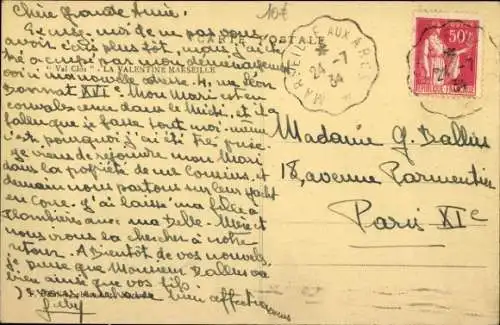 Chère grande Amie,
Excusez-moi de ne pas vous
avoir écris plus tôt, mais j'ai été
très occupée par mon déménagement
voici ma nouvelle adresse 4, rue Léon
Bonnat XVIe. Mon Mari est en
convalescence dans le Midi, et il a
fallu que je fasse tout moi-même
c'est pourquoi j'ai été très prise.
Je viens de rejoindre mon Mari
dans la propriété de mes Cousins, et
demain nous partons sur leur yacht
en Corse. J'ai laissé ma fille à
Plombières avec ma Belle-Mère et
nous irons la chercher à notre
retour. A Bientôt de vos nouvelles,
je pense que Monsieur Dallies va
bien ainsi que vos fils.
Je vous embrasse bien affectueusement
CARTE POSTALE
"Val Clair" - LA VALENTINE MARSEILLE
10€
MARSEILLE AUX ARCS
24-7
34
50c
POSTES
REPUBLIQUE FRANÇAISE
Madame G. Dallies
18, avenue Parmentier
Paris XIe